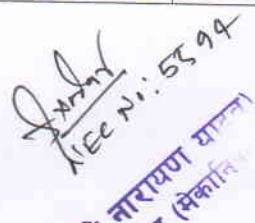 NEC No: 5594
नारायण यादव)
(मेकानि